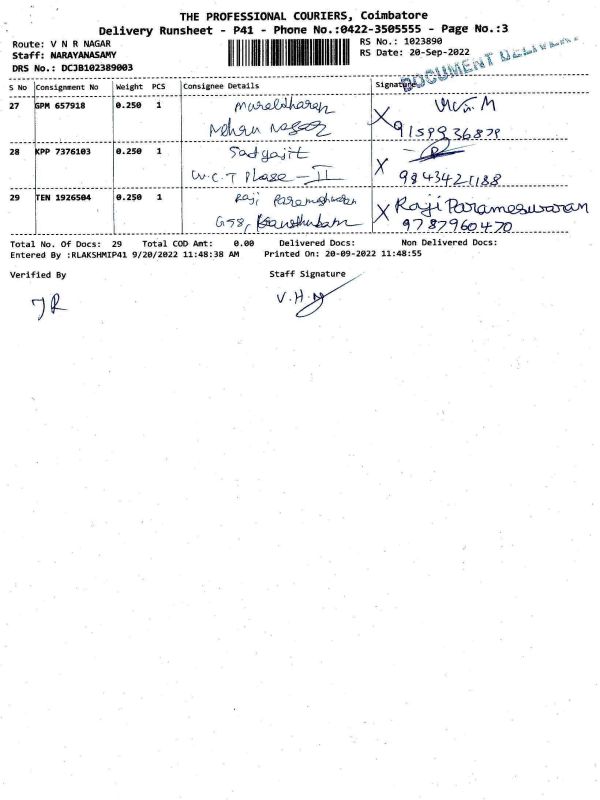 THE PROFESSIONAL COURIERS, Coimbatore
Delivery Runsheet - P41 - Phone No.:0422-3505555 - Page No.:3
Route: V N R NAGAR
Staff: NARAYANASAMY
DRS No.: DCJB102389003
RS No.: 1023890
RS Date: 20-Sep-2022
DOCUMENT DELIVERY
S No Consignment No Weight PCS Consignee Details Signature
27 GPM 657918 0.250 1 Muralidharan
Nehru Nagar
9159936879
28 KPP 7376103 0.250 1 Sadyajit
W.C.T Phase - II
9843421188
29 TEN 1926504 0.250 1 Raji Parameshwaran X Raji Parameswaran
G58, 9787960470
Total No. Of Docs: 29 Total COD Amt: 0.00 Delivered Docs: Non Delivered Docs:
Entered By :RLAKSHMIP41 9/20/2022 11:48:38 AM Printed On: 20-09-2022 11:48:55
Verified By Staff Signature
JR V.H.